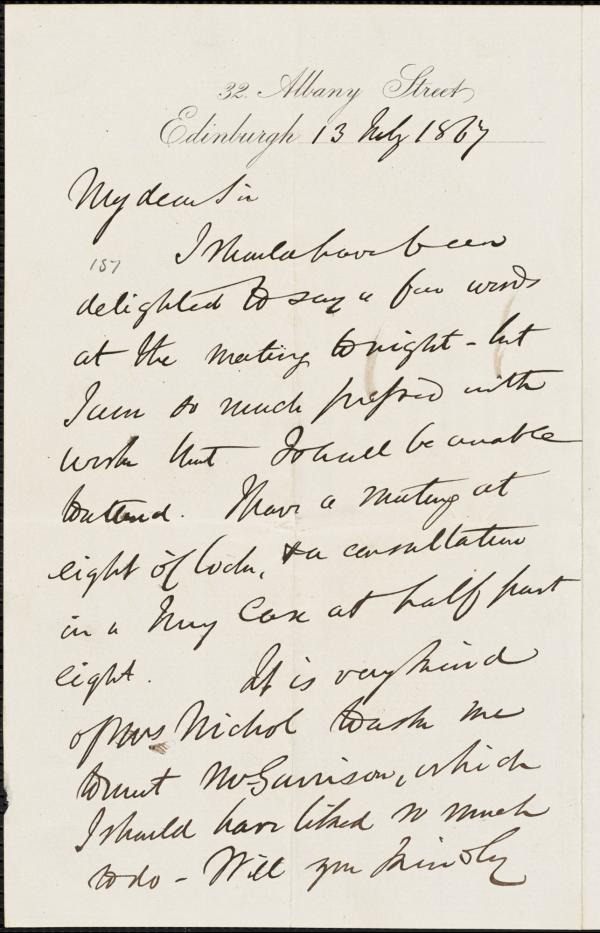 32. Albany Street
Edinburgh 13 July 1867
My dear Sir
I should have been
187
delighted to say a few words
at the meeting tonight - but
I am so much pressed with
work that I shall be unable
to attend. I have a meeting at
eight o'Clock, & a consultation
in a Jury Case at half past
eight. It is very kind
of Mrs Nichol to ask me
to meet Mr Garrison, which
I should have liked so much
to do - Will you kindly